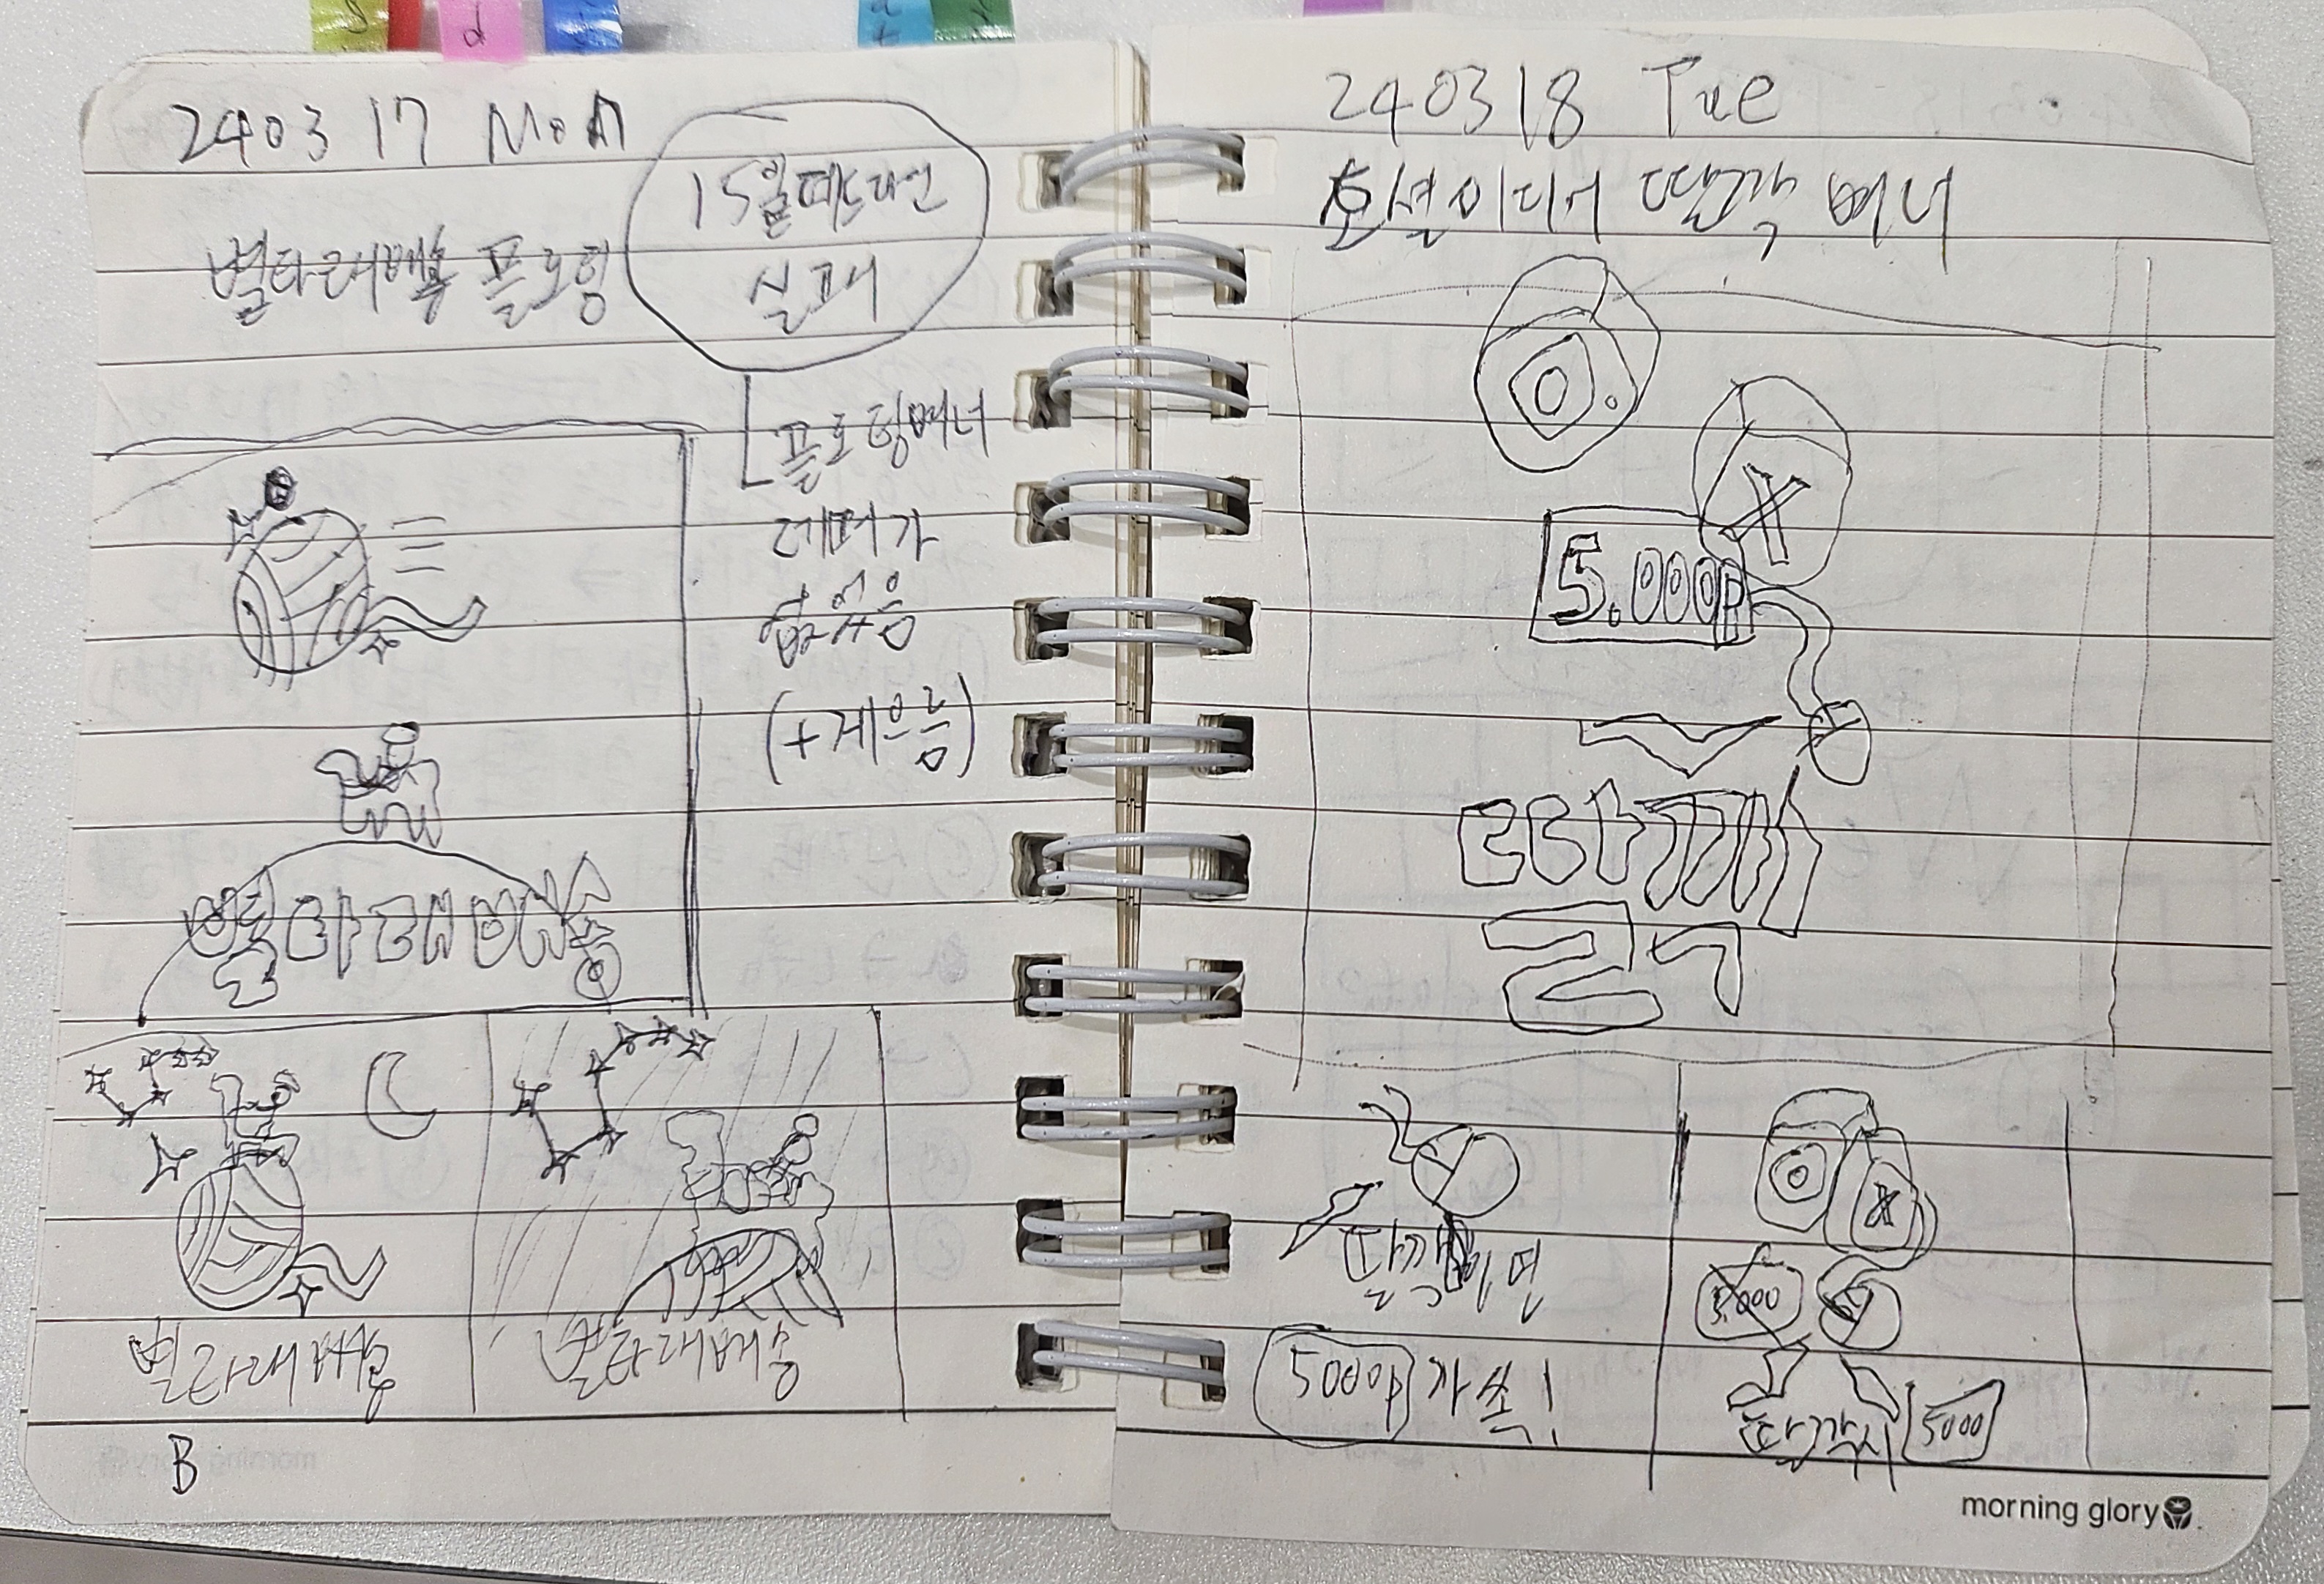 240317 Mon
별타래배송 플로팅
15일 데드라인
실패
플로팅배너
레퍼가
없음
(+게으름)
별타래배송
별타래배송
별타래배송
B
240318 Tue
딸깍 배너
O
X
5.000P
딸깍
딸깍이면
5000P 가 쏙!
O
X
5.000
딸깍시 5000
morning glory